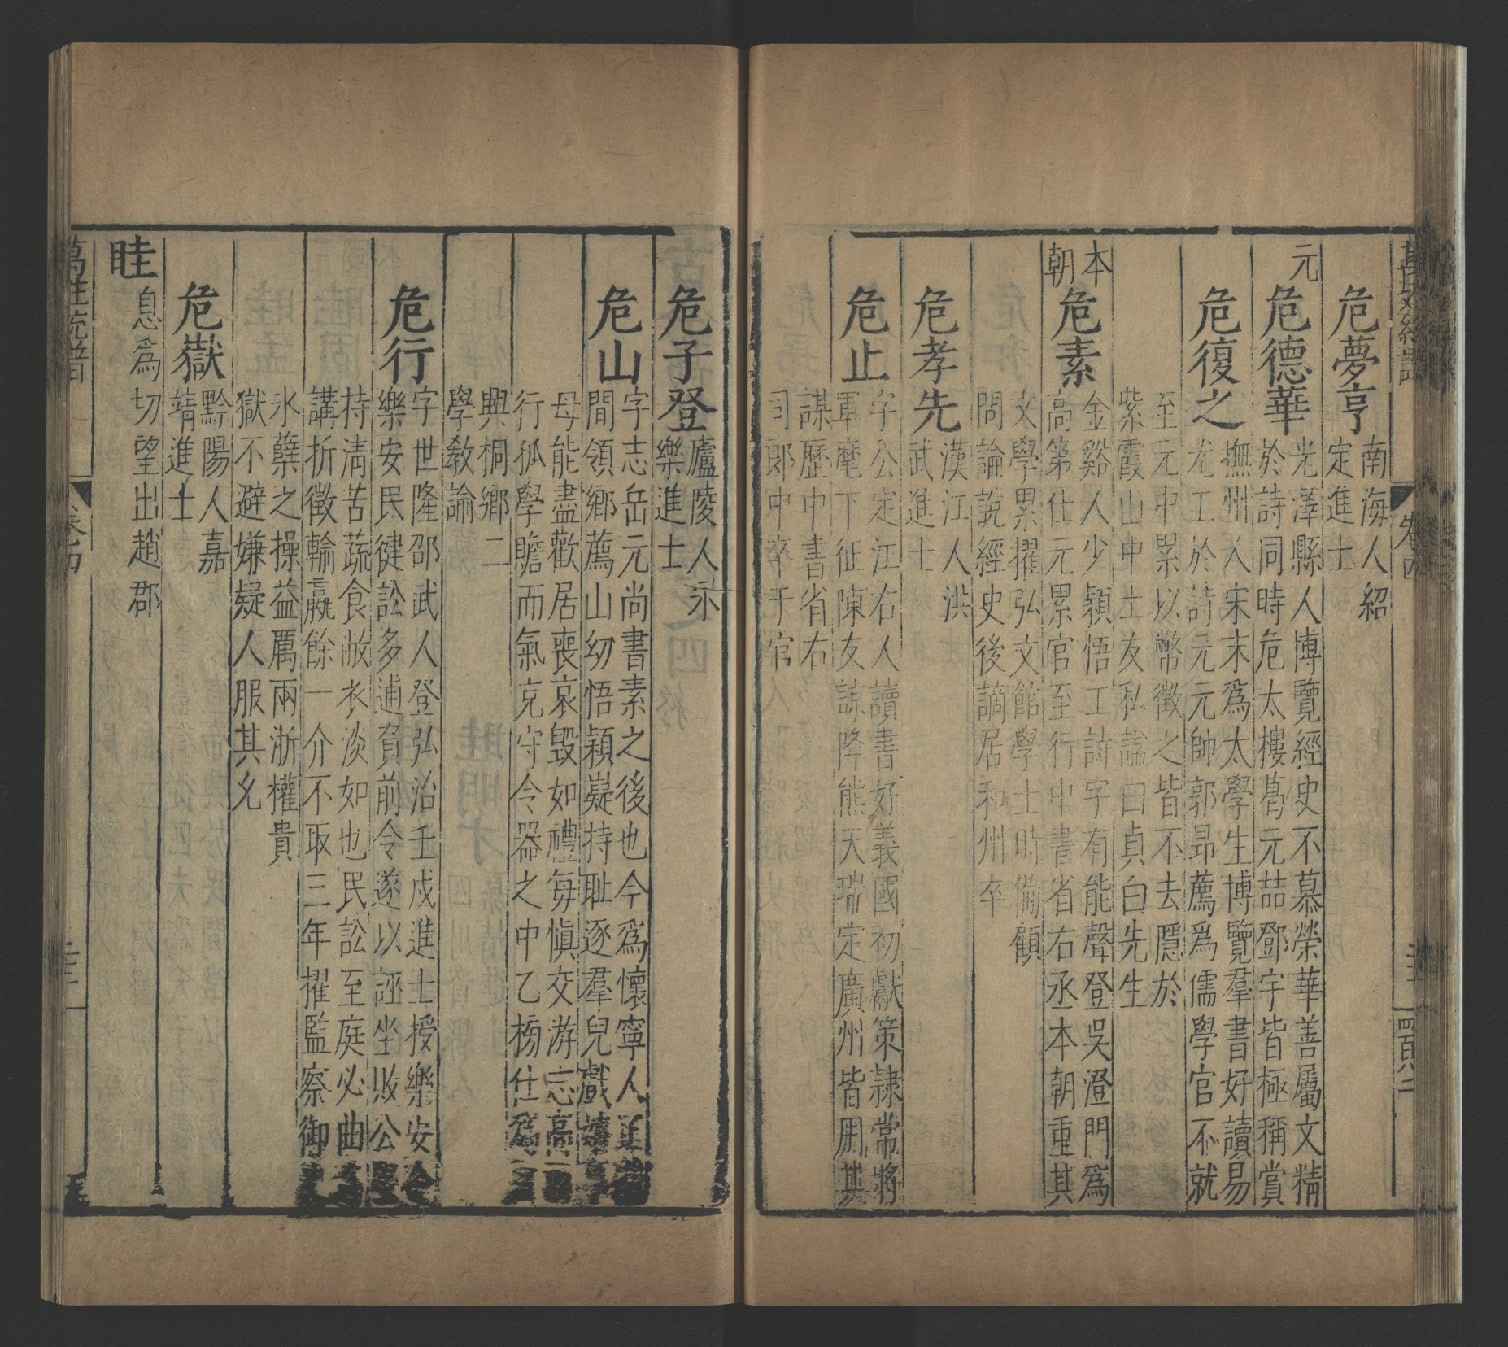 危夢亨
南海人紹
定進士
元
危德華
光澤縣人博覽經史不慕榮華善屬文精
於詩同時危太樸葛元喆鄧宇皆極稱賞
危復之
撫州人宋末為太學生博覽羣書好讀易
尤工於詩元元帥郭昂薦為儒學官不就
至元中累以幣徵之皆不去隱於
紫霞山中士友私謚曰貞白先生
本朝
危素
金谿人少穎悟工詩字有能聲登吳澄門為
高第仕元累官至行中書省右丞本朝重其
文學累擢弘文館學士時備顧
問論說經史後謫居和州卒
危孝先
漢江人洪
武進士
危止
字公定江右人讀書好義國初獻策隷常將
軍麾下征陳友諒降熊天瑞定廣州皆用其
謀歷中書省右
司郎中卒于官
危子登
廬陵人永
樂進士
危山
字志岳元尚書素之後也今為懷寧人正
間領鄉薦山幼悟穎嶷持恥逐羣兒戲
母能盡歡居喪哀毀如禮每慎交游忘高
行孤學贍而氣克守令器之中乙榜仕為
興桐鄉二
學敎諭
危行
字世隆邵武人登弘治壬戌進士授樂安
樂安民健訟多逋負前令遂以誣坐敗公
持清苦蔬食敝衣淡如也民訟至庭必曲
講折徵輸羸餘一介不取三年擢監察御
氷蘖之操益厲兩浙權貴
獄不避嫌疑人服其允
危嶽
黔陽人嘉
靖進士
眭
息為切望出趙郡
萬姓統譜
卷四